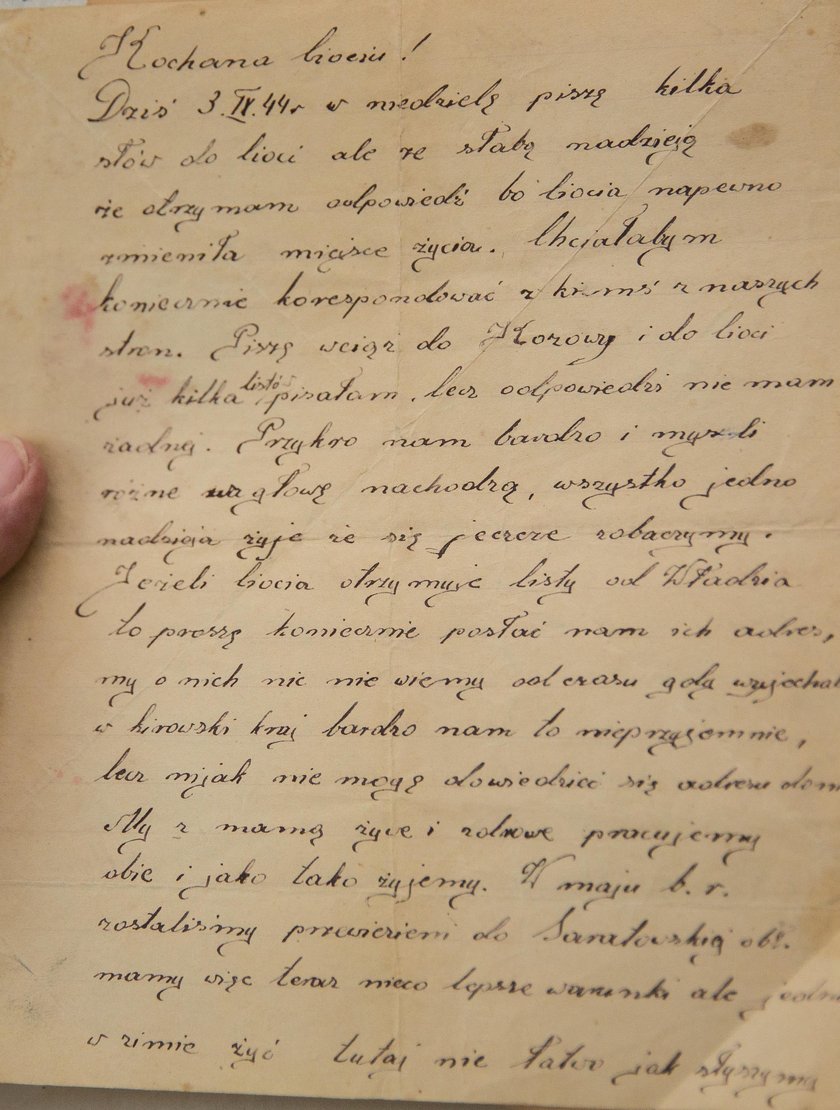 Kochana Ciociu!
Dziś 3.IX.44r w niedzielę piszę kilka
słów do Cioci ale ze słabą nadzieją
że otrzymam odpowiedź bo Ciocia napewno
zmieniła miejsce życia. Chciałabym
koniecznie korespondować z kimś z naszych
stron. Piszę wciąż do Kozowy i do Cioci
już kilka listów pisałam, lecz odpowiedzi nie mam
żadnej. Przykro nam bardzo i myśli
różne w głowę nachodzą, wszystko jedno
nadzieja żyje że się jeszcze zobaczymy.
Jeżeli Ciocia otrzymuje listy od Władzia
to proszę koniecznie posłać nam ich adres,
my o nich nic nie wiemy od czasu gdy wyjechali
w kirowski kraj bardzo nam to nieprzyjemnie,
lecz nijak nie mogę dowiedzieć się adresu
My z mamą żywe i zdrowe pracujemy
obie i jako tako żyjemy. W maju b. r.
zostaliśmy przewiezieni do Saratowskiej obł.
mamy więc teraz nieco lepsze warunki ale
w zimie żyć tutaj nie łatwo jak słyszymy